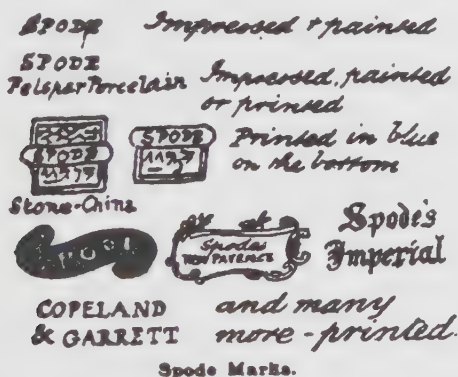 SPODE Impressed & painted
SPODE
Felspar Porcelain Impressed, painted
or printed
SPODE SPODE Printed in blue
on the bottom
Stone-China
SPODE Spodes Spode's
NEW FAYENCE Imperial
COPELAND and many
& GARRETT more - printed.
Spode Marks.